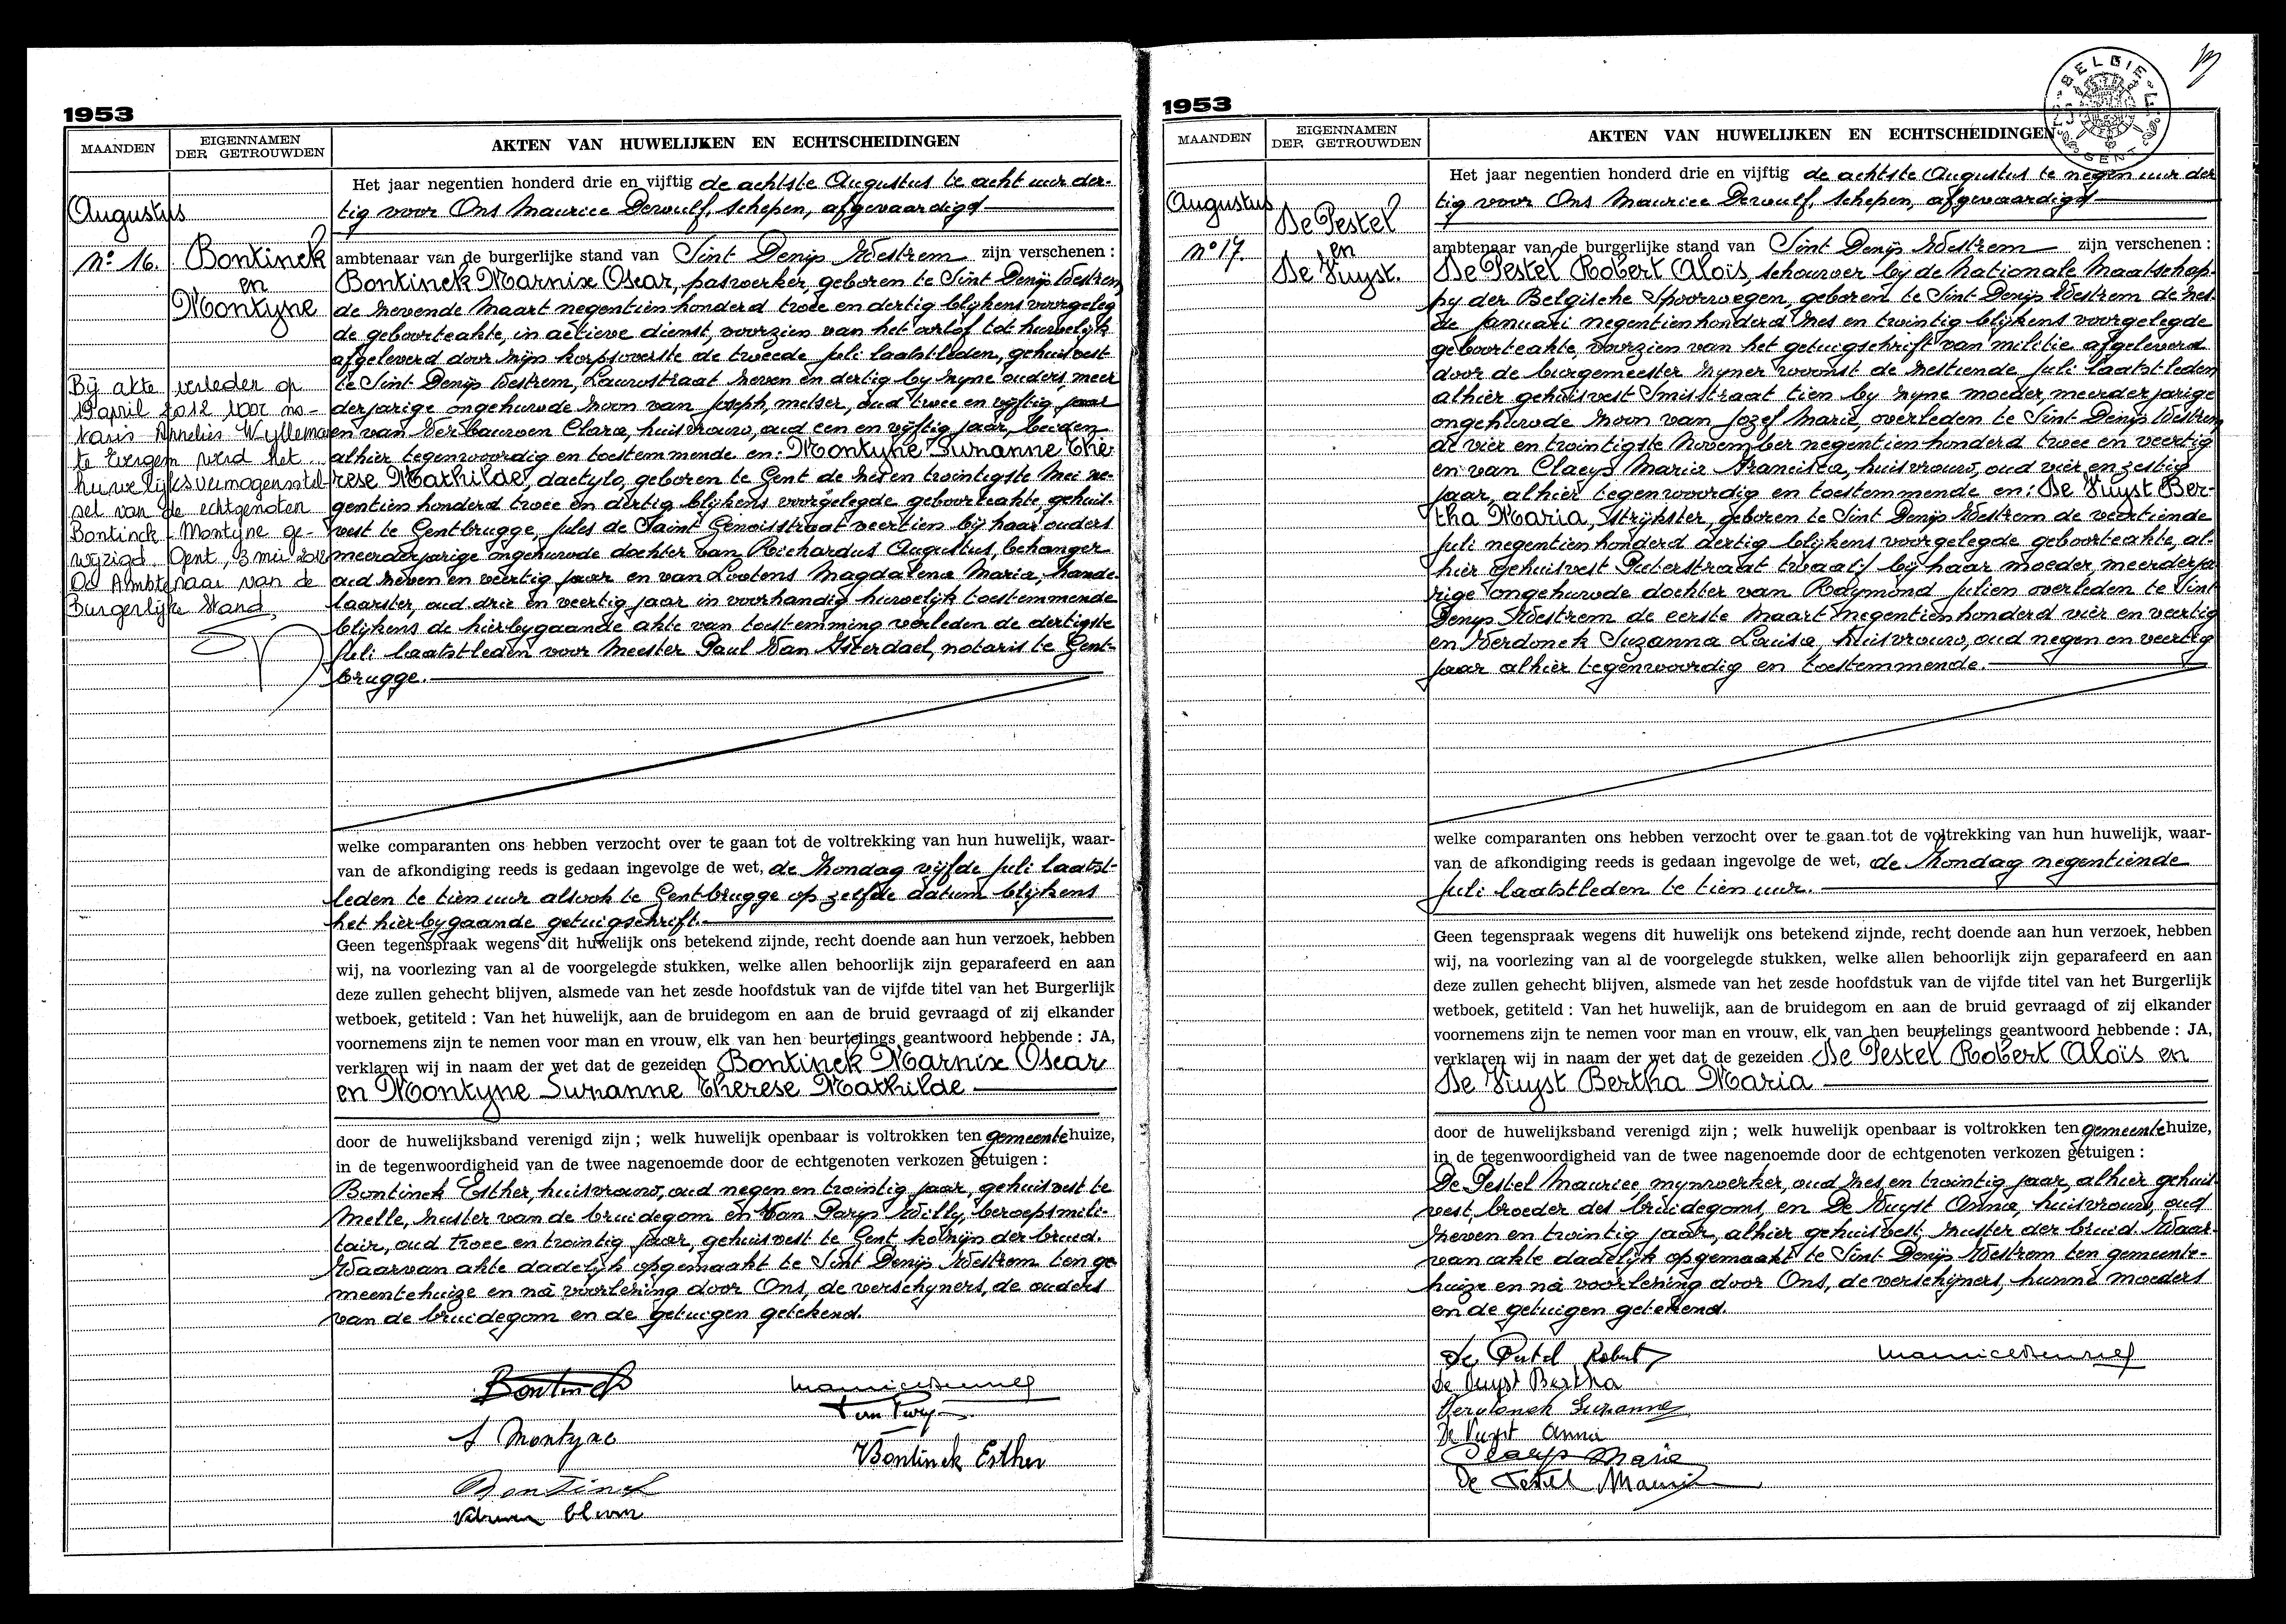 1953
MAANDEN
EIGENNAMEN
DER GETROUWDEN
AKTEN VAN HUWELIJKEN EN ECHTSCHEIDINGEN
Augustus
No 16.
Bontinck
en
Montyne
Bij akte verleden op
19 april 2012 voor no-
taris Annelies Wylleman
te Evergem werd het
huwelijksvermogensstel-
sel van de echtgenoten
Bontinck - Montyne ge-
wijzigd. Gent, 3 mei 2012
De Ambtenaar van de
Burgerlijke Stand,
Het jaar negentien honderd drie en vijftig de achtste Augustus te acht uur der-
tig voor Ons Maurice Dewulf, schepen, afgevaardigd
ambtenaar van de burgerlijke stand van Sint Denijs Westrem zijn verschenen :
Bontinck Marnix Oscar, paswerker, geboren te Sint Denijs Westrem
de zevende Maart negentien honderd twee en dertig blijkens voorgeleg
de geboorteakte, in actieve dienst, voorzien van het arlof tot huwelijk
afgeleverd door zijn korpsoverste de tweede Juli laatstleden, gehuisvest
te Sint Denijs Westrem, Lauwstraat zeven en dertig by zyne ouders meer
derjarige ongehuwde zoon van Joseph, melser, oud twee en vijftig jaar
en van Verbauwen Clara, huisvrouw, oud een en vijftig jaar, beiden
alhier tegenwoordig en toestemmende en: Montyne Suzanne Thé-
rese Mathilde, dactylo, geboren te Gent de zes en twintigste Mei ne-
gentien honderd twee en dertig blijkens voorgelegde geboorteakte, gehuis-
vest te Gentbrugge, Jules de Saint Genoisstraat veertien bij haar ouders
meerderjarige ongehuwde dochter van Richardus Augustus, behanger
oud zeven en veertig jaar en van Lootens Magdalena Maria, hande-
laarster, oud drie en veertig jaar in voorhandig huwelijk toestemmende
blijkens de hierbygaande akte van toestemming verleden de dertigste
Juli laatstleden voor Meester Paul Van Isterdael, notaris te Gent-
brugge.
welke comparanten ons hebben verzocht over te gaan tot de voltrekking van hun huwelijk, waar-
van de afkondiging reeds is gedaan ingevolge de wet, de Zondag vijfde Juli laatst-
leden te tien uur alsook te Gentbrugge op zelfde datum blijkens
het hierbygaande getuigschrift.
Geen tegenspraak wegens dit huwelijk ons betekend zijnde, recht doende aan hun verzoek, hebben
wij, na voorlezing van al de voorgelegde stukken, welke allen behoorlijk zijn geparafeerd en aan
deze zullen gehecht blijven, alsmede van het zesde hoofdstuk van de vijfde titel van het Burgerlijk
wetboek, getiteld : Van het huwelijk, aan de bruidegom en aan de bruid gevraagd of zij elkander
voornemens zijn te nemen voor man en vrouw, elk van hen beurtelings geantwoord hebbende : JA,
verklaren wij in naam der wet dat de gezeiden Bontinck Marnix Oscar
en Montyne Suzanne Therese Mathilde
door de huwelijksband verenigd zijn ; welk huwelijk openbaar is voltrokken ten gemeentehuize,
in de tegenwoordigheid van de twee nagenoemde door de echtgenoten verkozen getuigen :
Bontinck Esther, huisvrouw, oud negen en twintig jaar, gehuisvest te
Melle, zuster van de bruidegom en Van Parys Willy, beroepsmili-
tair, oud twee en twintig jaar, gehuisvest te Gent, kozijn der bruid.
Waarvan akte dadelijk opgemaakt te Sint Denijs Westrem ten ge
meentehuize en na voorlezing door Ons, de verschijners, de ouders
van de bruidegom en de getuigen getekend.
Bontinck
S Montyne
Bontinck
Bontinck Esther
1953
MAANDEN
EIGENNAMEN
DER GETROUWDEN
AKTEN VAN HUWELIJKEN EN ECHTSCHEIDINGEN
BELGIE
GENT
Augustus
No 17.
De Pestel
en
De Vuyst.
Het jaar negentien honderd drie en vijftig de achtste Augustus te negen uur der
tig voor Ons Maurice Dewulf, schepen, afgevaardigd
ambtenaar van de burgerlijke stand van Sint Denijs Westrem zijn verschenen :
De Pestel Robert Aloïs, schouwer bij de Nationale Maatschap-
py der Belgische Spoorwegen, geboren te Sint Denijs Westrem de zes-
de Januari negentienhonderd zes en twintig blijkens voorgelegde
geboorteakte, voorzien van het getuigschrift van militie afgeleverd
door de burgemeester zyner woonst de zestiende Juli laatstleden
alhier gehuisvest Smisstraat tien by zyne moeder, meerderjarige
ongehuwde zoon van Jozef Marie, overleden te Sint Denijs Westrem
de vier en twintigste November negentien honderd twee en veertig
en van Claeys Maria Francisca, huisvrouw, oud vier en zestig
jaar, alhier tegenwoordig en toestemmende en: De Vuyst Ber-
tha Maria, strijkster, geboren te Sint Denijs Westrem de veertiende
Juli negentienhonderd dertig blijkens voorgelegde geboorteakte, al-
hier gehuisvest Puterstraat twaalf bij haar moeder, meerderja
rige ongehuwde dochter van Raymond Julien overleden te Sint
Denijs Westrem de eerste Maart negentienhonderd vier en veertig
en Verdonck Suzanna Louisa, huisvrouw, oud negen en veertig
jaar alhier tegenwoordig en toestemmende.
welke comparanten ons hebben verzocht over te gaan tot de voltrekking van hun huwelijk, waar-
van de afkondiging reeds is gedaan ingevolge de wet, de Zondag negentiende
Juli laatstleden te tien uur.
Geen tegenspraak wegens dit huwelijk ons betekend zijnde, recht doende aan hun verzoek, hebben
wij, na voorlezing van al de voorgelegde stukken, welke allen behoorlijk zijn geparafeerd en aan
deze zullen gehecht blijven, alsmede van het zesde hoofdstuk van de vijfde titel van het Burgerlijk
wetboek, getiteld : Van het huwelijk, aan de bruidegom en aan de bruid gevraagd of zij elkander
voornemens zijn te nemen voor man en vrouw, elk van hen beurtelings geantwoord hebbende : JA,
verklaren wij in naam der wet dat de gezeiden De Pestel Robert Aloïs en
De Vuyst Bertha Maria
door de huwelijksband verenigd zijn ; welk huwelijk openbaar is voltrokken ten gemeentehuize,
in de tegenwoordigheid van de twee nagenoemde door de echtgenoten verkozen getuigen :
De Pestel Maurice, mynwerker, oud zes en twintig jaar, alhier gehuis-
vest, broeder des bruidegoms, en De Vuyst Anna, huisvrouw, oud
zeven en twintig jaar, alhier gehuisvest, zuster der bruid. Waar-
van akte dadelijk opgemaakt te Sint Denijs Westrem ten gemeente-
huize en na voorlezing door Ons, de verschijners, hunne moeders
en de getuigen getekend.
De Pestel Robert
De Vuyst Bertha
Verdonck Suzanne
De Vuyst Anna
Claeys Maria
De Pestel